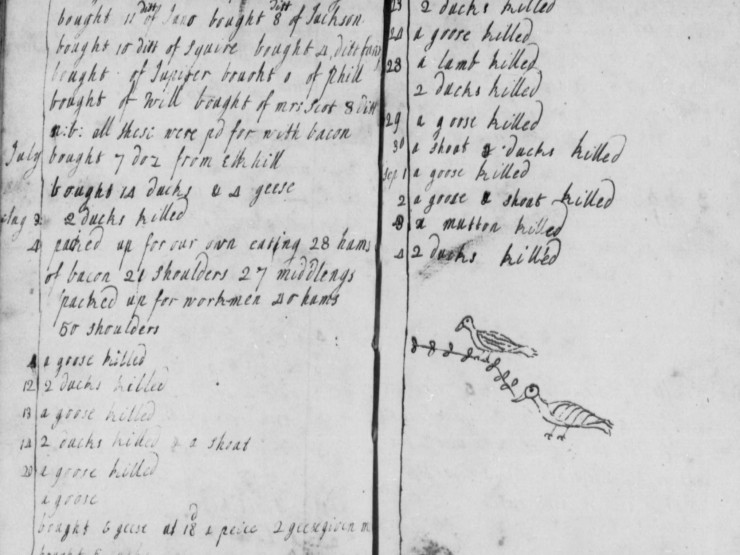 bought 11 ditt of Juno bought 8 ditt of Jackson
bought 10 ditt of Squire bought 4 ditt
bought of Jupiter bought of Phill
bought of Will bought of mrs Scot 8 ditt
n:b: all these were pd for with bacon
July bought 7 doz from Elkhill
bought 14 ducks & 4 geese
Aug 3 2 ducks killed
4 packed up for our own eating 28 hams
of bacon 21 shoulders 27 middlengs
packed up for workmen 40 hams
50 shoulders
a goose killed
12 2 ducks killed
13 a goose killed
14 2 ducks killed & a shoat
20 a goose killed
a goose
bought 6 geese at 18d a peice 2 geese given
23 2 ducks killed
24 a goose killed
28 a lamb killed
2 ducks killed
29 a goose killed
30 a shoat & ducks killed
Sep 1 a goose killed
2 a goose & shoat killed
a mutton killed
4 2 ducks killed